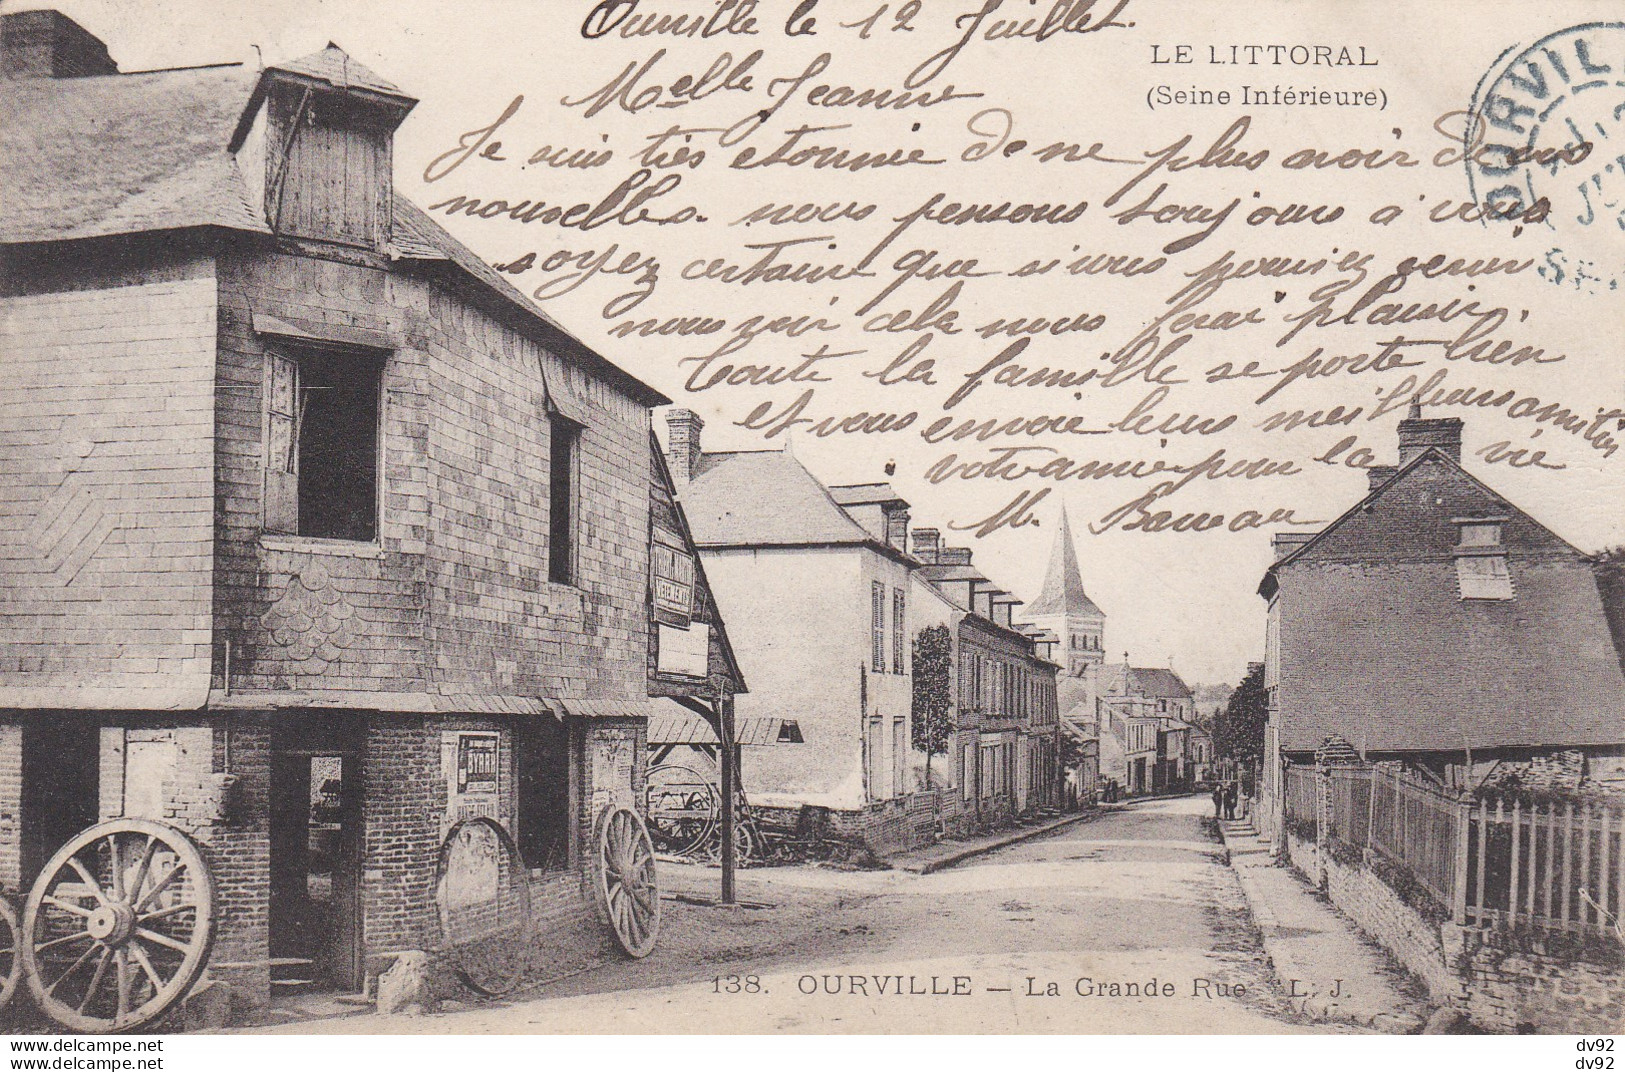 Ourville le 12 Juillet.
Melle Jeanne
Je suis très etonnée de ne plus avoir de vos
nouvelles. nous pensons toujours a vous
soyez certaine que si vous pouviez venir
nous voir cela nous ferai plaisir,
Toute la famille se porte bien
et vous envoie leurs meilleurs amitiés
votre amie pour la vie
M. Barreau
LE LITTORAL
(Seine Inférieure)
OURVILLE
VÊTEMENTS
BYRRH
138. OURVILLE — La Grande Rue L. J.
www.delcampe.net
www.delcampe.net
dv92
dv92